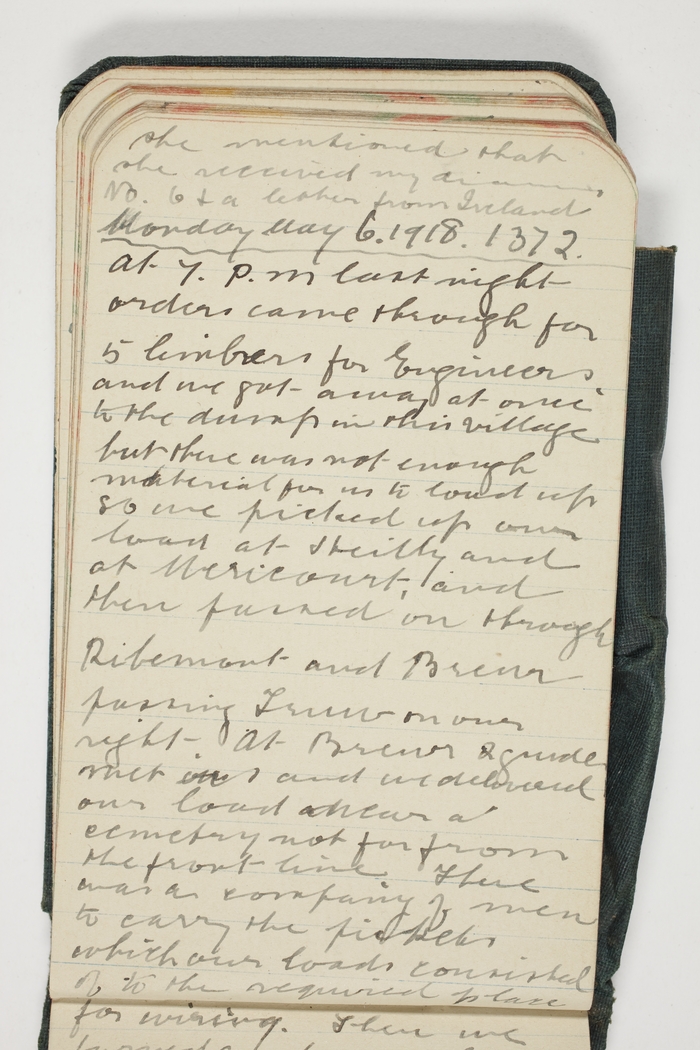 she mentioned that
she received my
No. 6 & a letter from Ireland
Monday May 6. 1918. 1372.
at 7. p.m last night
orders came through for
5 limbers for Engineers
and we got away at once
to the dump in this village
but there was not enough
material for us to load up
so we picked up our
load at Heilly and
at Mericourt, and
then passed on through
Ribemont and
passing on our
right. At a guide
met us and we delivered
our load near a
cemetry not far from
the front line. There
was a company of men
to carry the pickets
which our loads consisted
of to the required place
for wiring. Then we